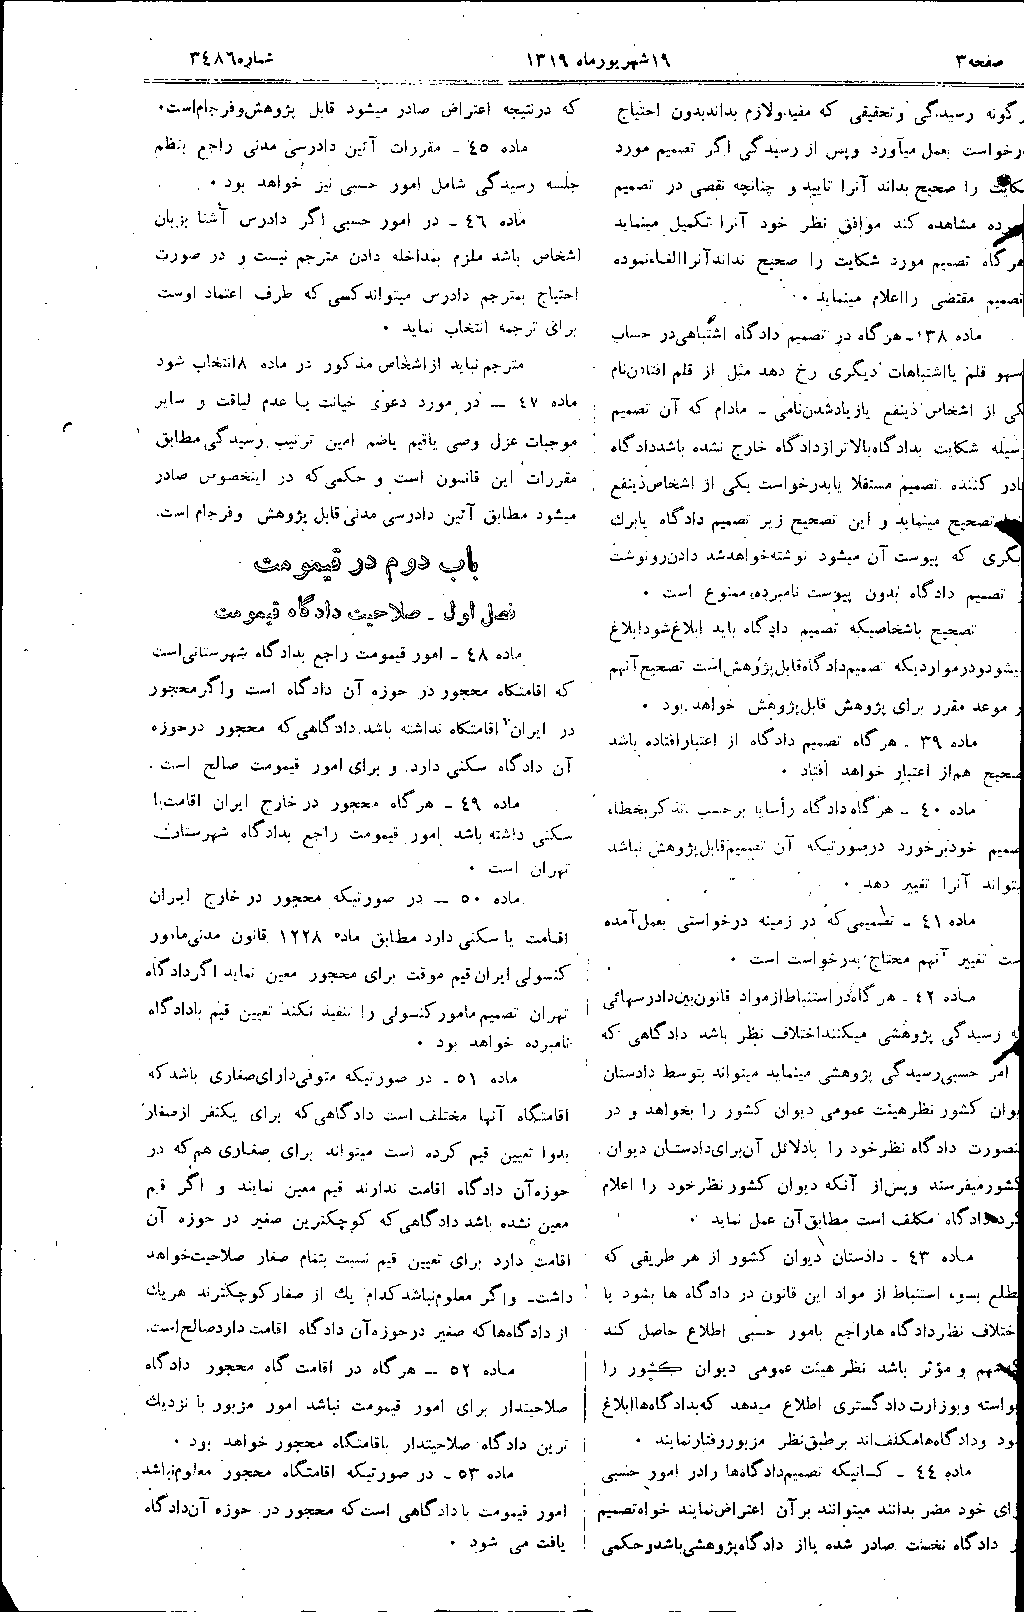 صفحه ۳
۱۹ شهریور ماه ۱۳۱۹
شماره ۳٤۸٦
گونه رسیدگی و تحقیقی که مفید و لازم بداند بدون احتیاج
درخواست بعمل میآورد و پس از رسیدگی اگر تصمیم مورد
شکایت را صحیح بداند آنرا تایید و چنانچه نقصی در تصمیم
مشاهده کند موافق نظر خود آنرا تکمیل مینماید
هرگاه تصمیم مورد شکایت را صحیح نداند آنرا الغاء نموده
تصمیم مقتضی را اعلام مینماید ۰
ماده ۳۸ - هرگاه در تصمیم دادگاه اشتباهی در حساب
سهو قلم یا اشتباهات دیگری رخ دهد مثل از قلم افتادن نام
یکی از اشخاص ذینفع یا زیاد شدن نامی - مادام که آن تصمیم
بوسیله شکایت بدادگاه بالاتر از دادگاه خارج نشده باشد دادگاه
صادر کننده تصمیم مستقلا یا بدرخواست یکی از اشخاص ذینفع
تصحیح مینماید و این تصحیح زیر تصمیم دادگاه یا برك
دیگری که پیوست آن میشود نوشته خواهد شد دادن رونوشت
از تصمیم دادگاه بدون پیوست نامبرده ممنوع است ۰
تصحیح باشخاصیکه تصمیم دادگاه باید ابلاغ شود ابلاغ
میشود و در مواردیکه تصمیم دادگاه قابل پژوهش است تصحیح آنهم
در موعد مقرر برای پژوهش قابل پژوهش خواهد بود ۰
ماده ۳۹ - هرگاه تصمیم دادگاه از اعتبار افتاده باشد
تصحیح هم از اعتبار خواهد افتاد ۰
ماده ٤۰ - هرگاه دادگاه رأسا یا برحسب تذکر بخطاء
تصمیم خود برخورد درصورتیکه آن تصمیم قابل پژوهش نباشد
میتواند آنرا تغییر دهد ۰
ماده ٤۱ - تصمیمی که در زمینه درخواستی بعمل آمده
است تغییر آنهم محتاج بدرخواست است ۰
ماده ٤۲ - هرگاه در استنباط از مواد قانون بین دادرسهائی
که رسیدگی پژوهشی میکنند اختلاف نظر باشد دادگاهی که
امر حسبی رسیدگی پژوهشی مینماید میتواند بتوسط دادستان
دیوان کشور نظر هیئت عمومی دیوان کشور را بخواهد و در
اینصورت دادگاه نظر خود را با دلائل آن برای دادستان دیوان
کشور میفرستد و پس از آنکه دیوان کشور نظر خود را اعلام
کرد دادگاه مکلف است مطابق آن عمل نماید ۰
ماده ٤۳ - دادستان دیوان کشور از هر طریقی که
مطلع بسوء استنباط از مواد این قانون در دادگاه ها بشود یا
اختلاف نظر دادگاه ها راجع بامور حسبی اطلاع حاصل کند
که مهم و مؤثر باشد نظر هیئت عمومی دیوان کشور را
خواسته و بوزارت دادگستری اطلاع میدهد که بدادگاه ها ابلاغ
شود و دادگاه ها مکلف اند برطبق نظر مزبور رفتار نمایند ۰
ماده ٤٤ - کسانیکه تصمیم دادگاه ها را در امور حسبی
برای خود مضر بدانند میتوانند بر آن اعتراض نمایند خواه تصمیم
از دادگاه نخست صادر شده یا از دادگاه پژوهشی باشد و حکمی
که در نتیجه اعتراض صادر میشود قابل پژوهش و فرجام است ۰
ماده ٤۵ - مقررات آئین دادرسی مدنی راجع بنظم
جلسه رسیدگی شامل امور حسبی نیز خواهد بود ۰
ماده ٤٦ - در امور حسبی اگر دادرس آشنا بزبان
اشخاص باشد ملزم بمداخله دادن مترجم نیست و در صورت
احتیاج بمترجم دادرس میتواند کسی که طرف اعتماد اوست
برای ترجمه انتخاب نماید ۰
مترجم نباید از اشخاص مذکور در ماده ۸ انتخاب شود
ماده ٤۷ ــ در مورد دعوی خیانت یا عدم لیاقت و سایر
موجبات عزل وصی یا قیم یا ضم امین ترتیب رسیدگی مطابق
مقررات این قانون است و حکمی که در اینخصوص صادر
میشود مطابق آئین دادرسی مدنی قابل پژوهش و فرجام است.
باب دوم در قیمومت
فصل اول - صلاحیت دادگاه قیمومت
ماده ٤۸ - امور قیمومت راجع بدادگاه شهرستانی است
که اقامتگاه محجور در حوزه آن دادگاه است و اگر محجور
در ایران اقامتگاه نداشته باشد دادگاهی که محجور در حوزه
آن دادگاه سکنی دارد. و برای امور قیمومت صالح است.
ماده ٤۹ - هرگاه محجور در خارج ایران اقامت یا
سکنی داشته باشد امور قیمومت راجع بدادگاه شهرستان
تهران است ۰
ماده ۵۰ ــ در صورتیکه محجور در خارج ایران
اقامت یا سکنی دارد مطابق ماده ۱۲۲۸ قانون مدنی مامور
کنسولی ایران قیم موقت برای محجور معین نماید اگر دادگاه
تهران تصمیم مامور کنسولی را تنفیذ نکند تعیین قیم با دادگاه
نامبرده خواهد بود ۰
ماده ۵۱ - در صورتیکه متوفی دارای صغاری باشد که
اقامتگاه آنها مختلف است دادگاهی که برای یکنفر از صغار
بدوا تعیین قیم کرده است میتواند برای صغاری هم که در
حوزه آن دادگاه اقامت ندارند قیم معین نمایند و اگر قیم
معین نشده باشد دادگاهی که کوچکترین صغیر در حوزه آن
اقامت دارد برای تعیین قیم نسبت بتمام صغار صلاحیت خواهد
داشت و اگر معلوم نباشد کدام یك از صغار کوچکترند هر یك
از دادگاه ها که صغیر در حوزه آن دادگاه اقامت دارد صالح است.
ماده ۵۲ ــ هرگاه در اقامت گاه محجور دادگاه
صلاحیتدار برای امور قیمومت نباشد امور مزبور با نزدیك
ترین دادگاه صلاحیتدار باقامتگاه محجور خواهد بود ۰
ماده ۵۳ - در صورتیکه اقامتگاه محجور معلوم نباشد
امور قیمومت با دادگاهی است که محجور در حوزه آن دادگاه
یافت می شود ۰